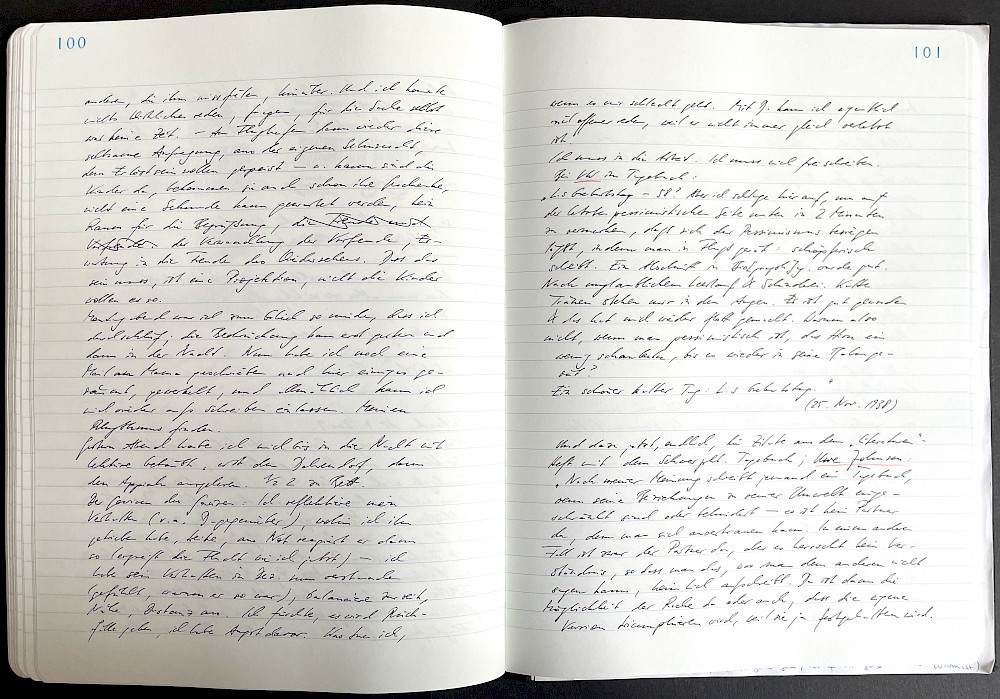 100
andere, die ihm , hinunter. Und ich konnte
nichts Wirkliches reden, fragen, für die Sache selbst
war keine Zeit. – Am Flughafen dann wieder diese
seltsame Aufregung, aus der eigenen Sehnsucht,
dem wollen gespeist – u. kaum sind die
Kinder da, bekommen sie auch schon ihre Geschenke,
nicht eine Sekunde kann gewartet werden, kein
Raum für die Begrüßung, die
der Verwandlung der Vorfreude,
in die Freude des Wiedersehens. Dass das
sein muss, ist eine Projektion, nicht die Kinder
wollen es so.
abend war ich zum Glück so müde, dass ich
durchschlief; die kam erst gestern und
dann in der Nacht. Nun habe ich noch eine
Mail an Mama geschrieben und hier einiges ge-
räumt, , und allmählich kann ich
mich wieder aufs Schreiben einlassen. Meinen
Rhythmus finden.
Gestern Abend habe ich mich bis in die Nacht mit
Lektüre betäubt, erst den , dann
den angelesen. ½ 2 im Bett.
Der Gewinn der : Ich reflektiere mein
Verhalten (v.a. J. gegenüber), wohin ich ihn
getrieben habe, , aus Not reagiert er dann
so (ergreift die Flucht wie ich jetzt) – ich
habe sein Verhalten in , nun verstanden
(gefühlt, warum er so war),
Nähe, Distanz aus. Ich fürchte, es wird Rück-
fälle geben, ich habe Angst davor. Was tue ich,
101
wenn es mir schlecht geht. Mit J. kann ich eigentlich
nie offener reden, weil er nicht immer gleich verletzt
ist.
Ich muss in die Arbeit. Ich muss mich freischreiben.
Bei im Tagebuch:
"L.s Geburtstag – 58? Aber ich schlage hier auf, um auf
der letzten pessimistischen Seite unten in 2 Minuten
zu vermerken, daß sich der Pessimismus besiegen
läßt, indem man in Fluß gerät: schöpferische
schreibt. Ein Abschnitt in wurde gut.
Nach unglaublichem & Schinderei. Kalte
Tränen stehen mir in den Augen. Es ist gut geworden
& das hat mich wieder gemacht. Warum also
nicht, wenn man pessimistisch ist, das Horn ein
wenig , bis es wieder in seine
?
Ein schöner kalter Tag: L.s Geburtstag."
(25. Nov. 1938)
Und dazu jetzt, endlich, die Zitate aus dem "Literatur"-
Heft mit dem Schwerpkt. Tagebuch; Uwe Johnson:
"Nach meiner Meinung schreibt jemand ein Tagebuch,
wenn seine Beziehungen zu seiner Umwelt einge-
schränkt sind oder behindert – es ist kein Partner
da, dem man sich anvertrauen kann. In einem anderen
Fall ist zwar der Partner da, aber es herrscht kein Ver-
ständnis, so dass man das, was man dem anderen nicht
sagen kann, heimlich aufschreibt. Da ist dann die
Möglichkeit der Rache da oder auch, dass die eigene
Version triumphieren wird, weil sie ja festgehalten wird.